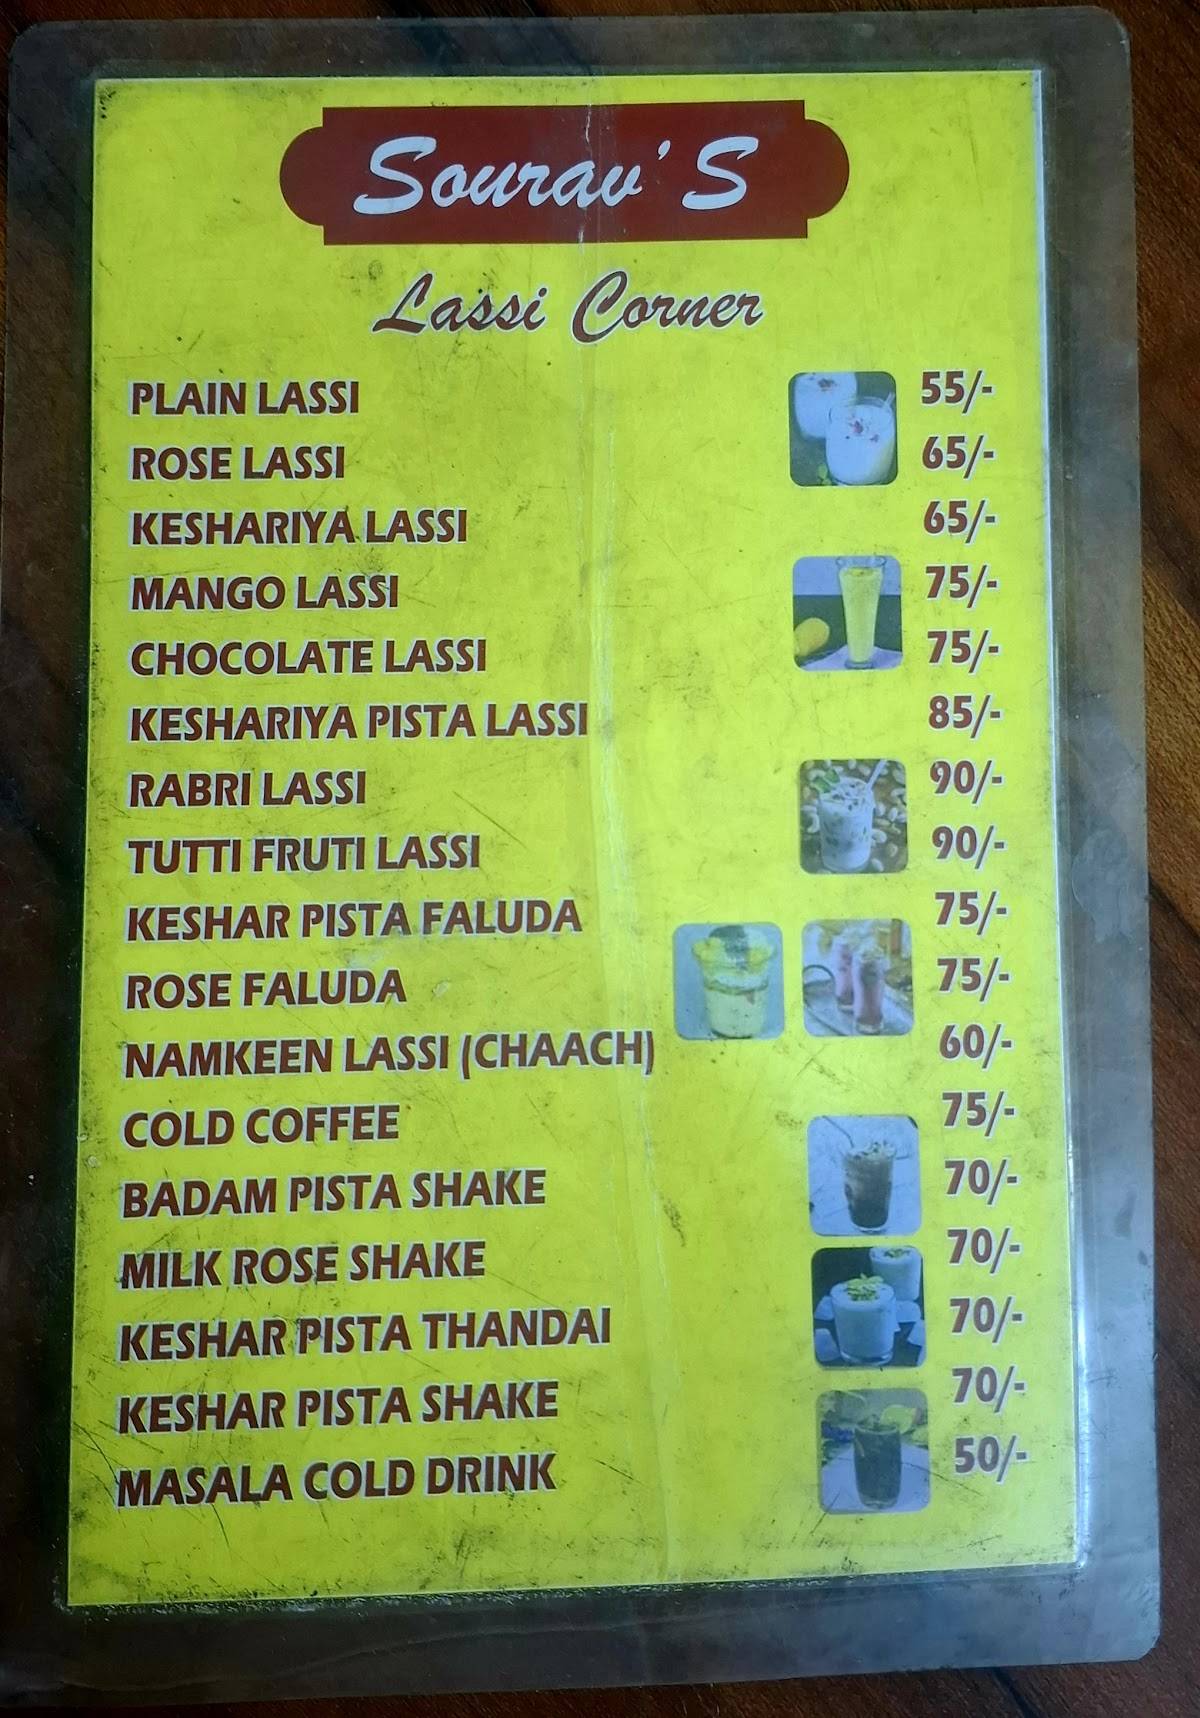 Sourav'S
Lassi Corner
PLAIN LASSI 55/-
ROSE LASSI 65/-
KESHARIYA LASSI 65/-
MANGO LASSI 75/-
CHOCOLATE LASSI 75/-
KESHARIYA PISTA LASSI 85/-
RABRI LASSI 90/-
TUTTI FRUTI LASSI 90/-
KESHAR PISTA FALUDA 75/-
ROSE FALUDA 75/-
NAMKEEN LASSI (CHAACH) 60/-
COLD COFFEE 75/-
BADAM PISTA SHAKE 70/-
MILK ROSE SHAKE 70/-
KESHAR PISTA THANDAI 70/-
KESHAR PISTA SHAKE 70/-
MASALA COLD DRINK 50/-